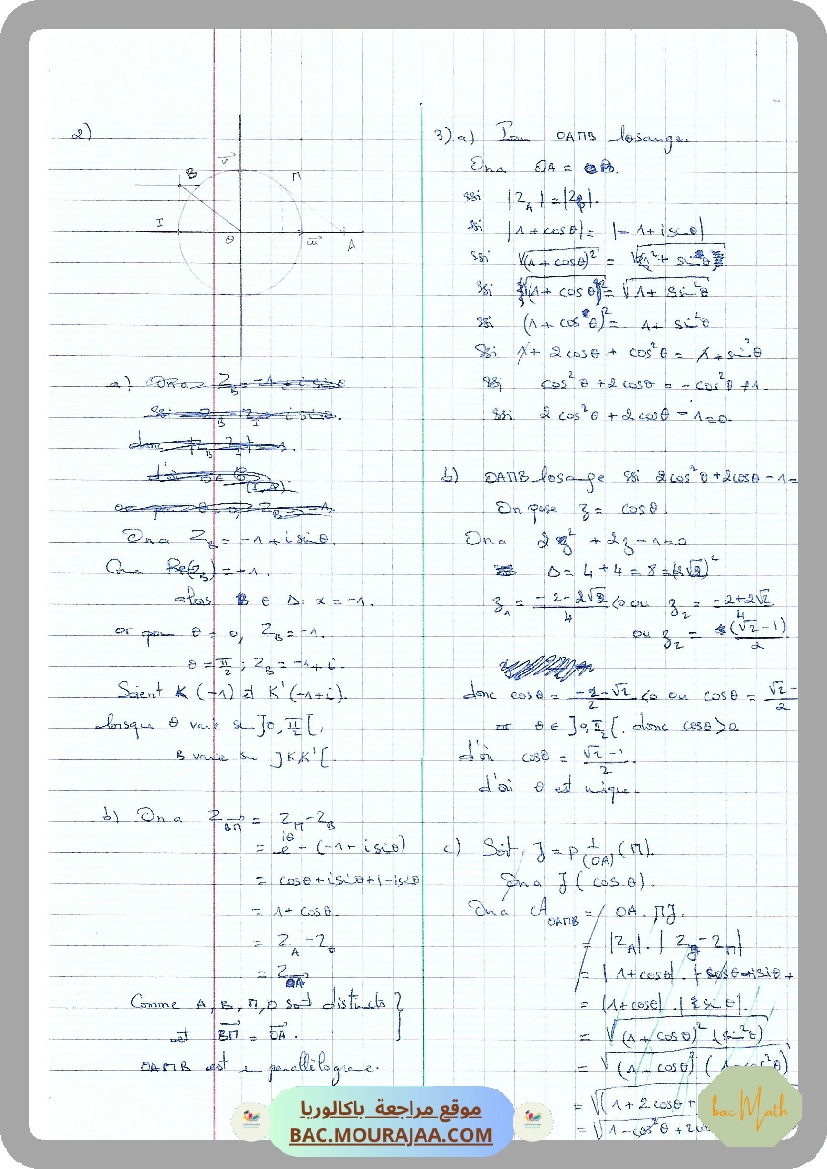 2)
v
B
M
I
O
u
A
a)
On a Z_B = -1 + i sinθ.
On a Re(z_B) = -1.
alors B ∈ Δ: x = -1.
or pour θ = 0, Z_B = -1.
θ = π/2 ; Z_B = -1 + i.
Soient K (-1) et K'(-1+i).
lorsque θ varie sur ]0, π/2[,
B varie sur ]KK'[.
b) On a Z_BM = Z_M - Z_B
= e^iθ - (-1 + i sinθ)
= cosθ + i sinθ + 1 - i sinθ
= 1 + cosθ.
= Z_A - Z_O
= Z_OA
Comme A, B, M, O sont distincts
et BM = OA.
OAMB est un parallélogramme.
3) a) Pour OAMB losange
On a OA = OB.
ssi |Z_A| = |Z_B|.
ssi |1 + cosθ| = |-1 + i sinθ|
ssi √(1 + cosθ)² = √1² + sin²θ
ssi √(1 + cosθ)² = √1 + sin²θ
ssi (1 + cosθ)² = 1 + sin²θ
ssi 1 + 2cosθ + cos²θ = 1 + sin²θ
ssi cos²θ + 2cosθ = -cos²θ + 1.
ssi 2cos²θ + 2cosθ - 1 = 0.
b) OAMB losange ssi 2cos²θ + 2cosθ - 1 =
On pose z = cosθ.
On a 2z² + 2z - 1 = 0
Δ = 4 + 4 = 8 = (2√2)²
z₁ = (-2 - 2√2)/4 < 0 ou z₂ = (-2 + 2√2)/4
ou z₂ = (√2 - 1)/2
donc cosθ = (-2 - √2)/2 < 0 ou cosθ = √2 - /2
or θ ∈ ]0, π/2[. donc cosθ > 0
d'où cosθ = (√2 - 1)/2.
d'où θ est unique.
c) Soit J = p⊥(OA) (M).
On a J (cosθ).
On a A_OAMB = OA . MJ.
= |Z_A| . | Z_J - Z_M |
= |1 + cosθ| . | cosθ - isinθ +
= (1 + cosθ) . | sinθ |.
= √(1 + cosθ)² (sin²θ)
= √(1 - cosθ)² (1 - cos²θ)
= √(1 + 2cosθ +
= √1 - cos²θ + 2co
موقع مراجعة باكالوريا
BAC.MOURAJAA.COM
bac Math